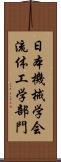 日本機械学会
流体工学部門